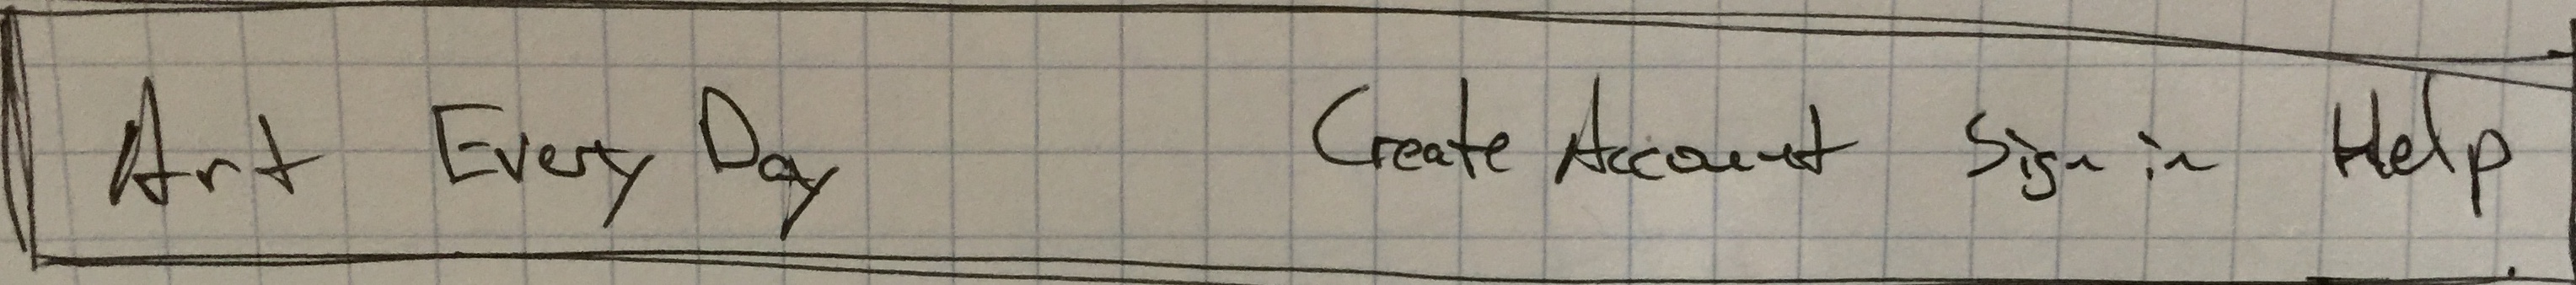 Art Every Day Create Account Sign in Help